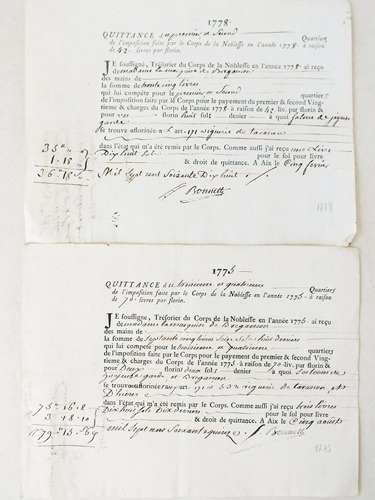 1778.
QUITTANCE du premier et Second Quartiers
de l'imposition faite par le Corps de la Noblesse en l'année 1778. à raison
de 42. livres par florin.
JE soussigné, Trésorier du Corps de la Noblesse en l'année 1778 ai reçu
de madame la marquise de Breganson
des mains de
la somme de trente cinq livres
qui lui compete pour le premier et Second quartiers
de l'imposition faite par le Corps pour le payement du premier & second Ving-
tieme & charges du Corps de l'année 1778 à raison de 42 liv. par florin &
pour un florin huit sol denier à quoi
garde
se trouve afflorinée
dans l'état qui m'a été remis par le Corps. Comme aussi j'ai reçu une Livre
Dix huit sols pour le sol pour livre
& droit de quittance. A Aix le Cinq
Mil Sept cent Soixante Dix huit
35
1. 18
36. 18
Bonnett
1778
1775.
QUITTANCE du troisieme et quatrieme Quartiers
de l'imposition faite par le Corps de la Noblesse en l'année 1775. à raison
de 70. livres par florin.
JE soussigné, Trésorier du Corps de la Noblesse en l'année 1775. ai reçu
de madame la marquise de Breganson
des mains de
la somme de Septante cinq livres Seize sols huit deniers
qui lui compete pour le troisieme et quatrieme quartiers
de l'imposition faite par le Corps pour le payement du premier & second Ving-
tieme & charges du Corps de l'année 1775. à raison de 70. liv. par florin &
pour Deux florins deux sol denier à quoi
garde et Breganson
se trouve afflorinée
D'hieres
dans l'état qui m'a été remis par le Corps. Comme aussi j'ai reçu trois livres
Dix huit sols Dix deniers pour le sol pour livre
& droit de quittance. A Aix le Cinq aoust
mil sept cens soixante quinze
75. 16. 8
3. 18. 10
79. 15. 6
Bonnett
1775